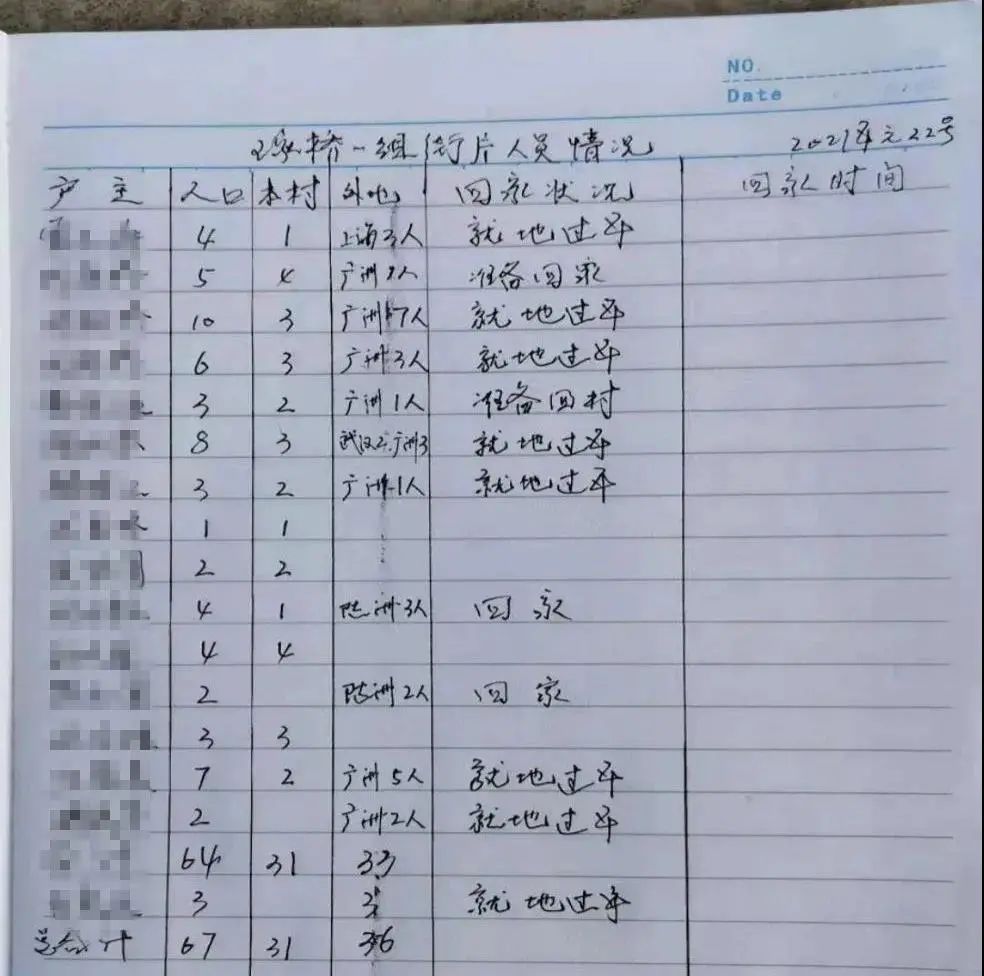 NO.
Date
桥一组 行片人员情况 2021年元22号
户主 人口 本村 外地 回家状况 回家时间
4 1 上海3人 就地过年
5 4 广洲1人 准备回家
10 3 广洲7人 就地过年
6 3 广洲3人 就地过年
3 2 广洲1人 准备回村
8 3 武汉2.广洲3 就地过年
3 2 广洲1人 就地过年
1 1
2 2
4 1 随洲3人 回家
4 4
2 随洲2人 回家
3 3
7 2 广洲5人 就地过年
2 广洲2人 就地过年
64 31 33
3 3 就地过年
总合计 67 31 36